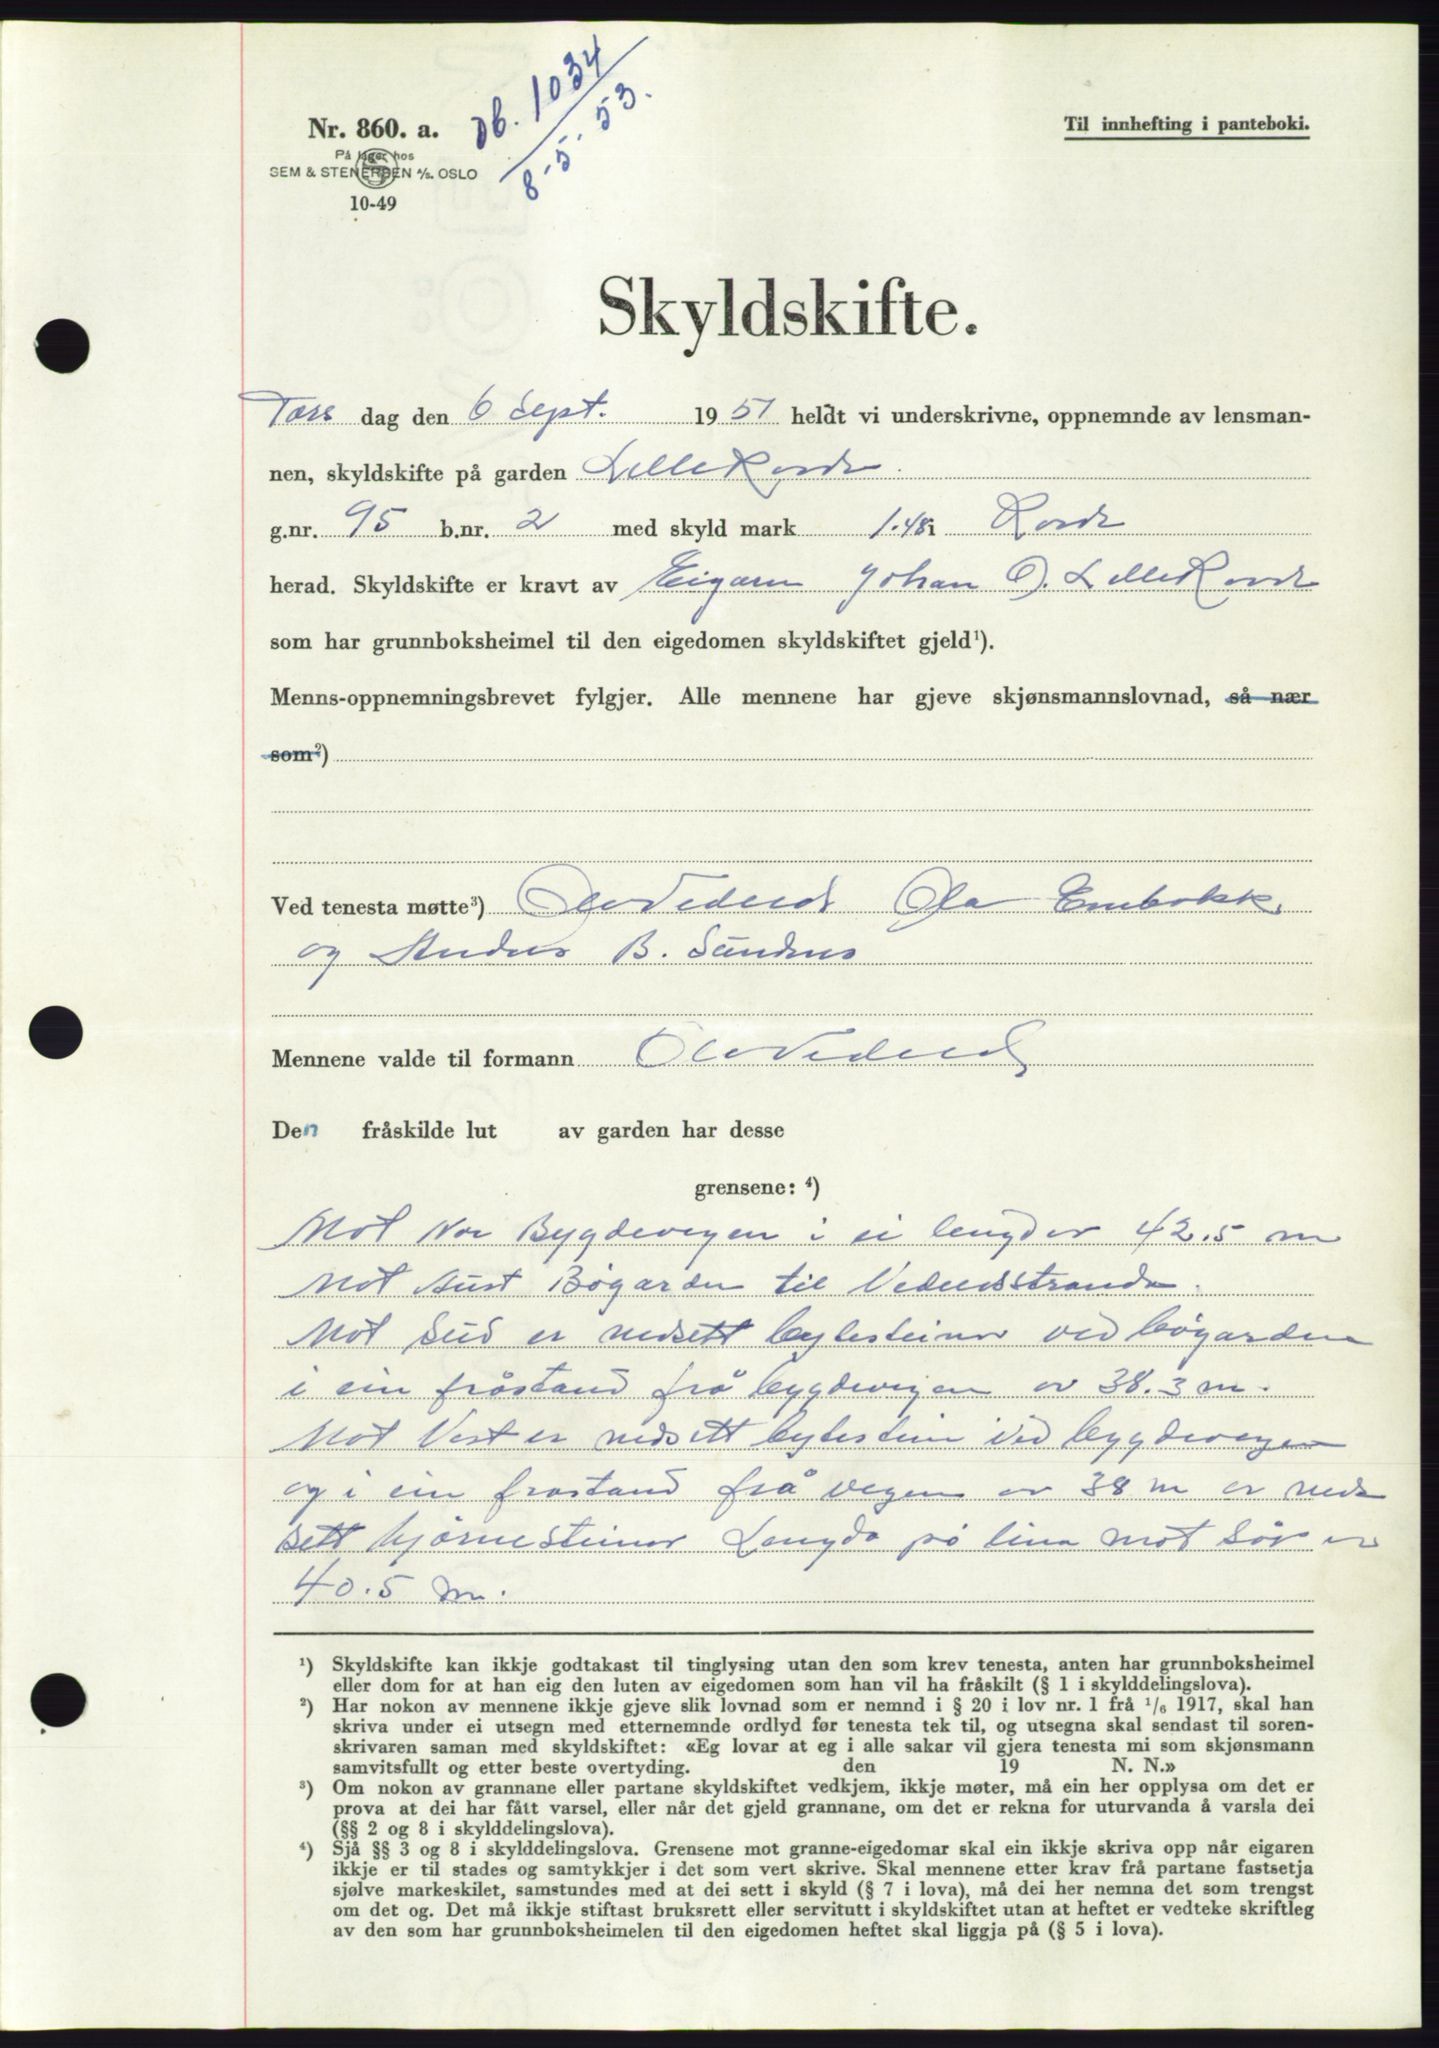 Db. 1034
8-5-53.
Nr. 860. a.
Til innhefting i panteboki.
På lager hos
SEM & STENERSEN A/S. OSLO
10-49
Skyldskifte.
Tors dag den 6 Sept. 1951 heldt vi underskrivne, oppnemnde av lensman-
nen, skyldskifte på garden LilleRovde
g.nr. 95 b.nr. 2 med skyld mark 1.48 i Rovde
herad. Skyldskifte er kravt av Eigaren Johan O. LilleRovde
som har grunnboksheimel til den eigedomen skyldskiftet gjeld¹).
Menns-oppnemningsbrevet fylgjer. Alle mennene har gjeve skjønsmannslovnad, så nær
som²)
Ved tenesta møtte³) Ola
og Anders B. Sundnes
Mennene valde til formann
Den fråskilde lut av garden har desse
grensene: ⁴)
Mot Nor Bygdevegen i ei lengd av 42.5 m
Mot Aust Bøgarden til
Mot Sud er nedsett bytesteinar ved bøgarden
i ein fråstand frå bygdevegen av 38.3 m.
Mot Vest er nedsett bytestein ved bygdevegen
og i ein frastand frå vegen av 38 m er ned
sett hjørnesteinar Lengda på lina mot Sør er
40.5 m.
¹) Skyldskifte kan ikkje godtakast til tinglysing utan den som krev tenesta, anten har grunnboksheimel
eller dom for at han eig den luten av eigedomen som han vil ha fråskilt (§ 1 i skylddelingslova).
²) Har nokon av mennene ikkje gjeve slik lovnad som er nemnd i § 20 i lov nr. 1 frå ¹/₆ 1917, skal han
skriva under ei utsegn med etternemnde ordlyd før tenesta tek til, og utsegna skal sendast til soren-
skrivaren saman med skyldskiftet: «Eg lovar at eg i alle sakar vil gjera tenesta mi som skjønsmann
samvitsfullt og etter beste overtyding. den 19 N. N.»
³) Om nokon av grannane eller partane skyldskiftet vedkjem, ikkje møter, må ein her opplysa om det er
prova at dei har fått varsel, eller når det gjeld grannane, om det er rekna for uturvanda å varsla dei
(§§ 2 og 8 i skylddelingslova).
⁴) Sjå §§ 3 og 8 i skylddelingslova. Grensene mot granne-eigedomar skal ein ikkje skriva opp når eigaren
ikkje er til stades og samtykkjer i det som vert skrive. Skal mennene etter krav frå partane fastsetja
sjølve markeskilet, samstundes med at dei sett i skyld (§ 7 i lova), må dei her nemna det som trengst
om det og. Det må ikkje stiftast bruksrett eller servitutt i skyldskiftet utan at heftet er vedteke skriftleg
av den som har grunnboksheimelen til den eigedomen heftet skal liggja på (§ 5 i lova).